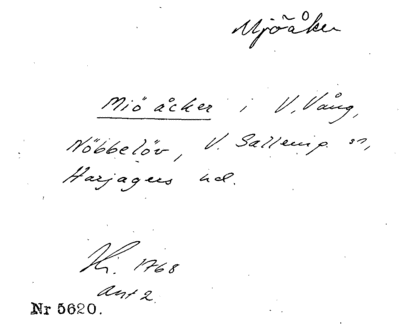 Mjöåker
Miöåcker i V. Vång,
Nöbbelöv, V. Sallerup sn,
Harjagers hd.
Hi. 1768
ant 2
Nr 5620.